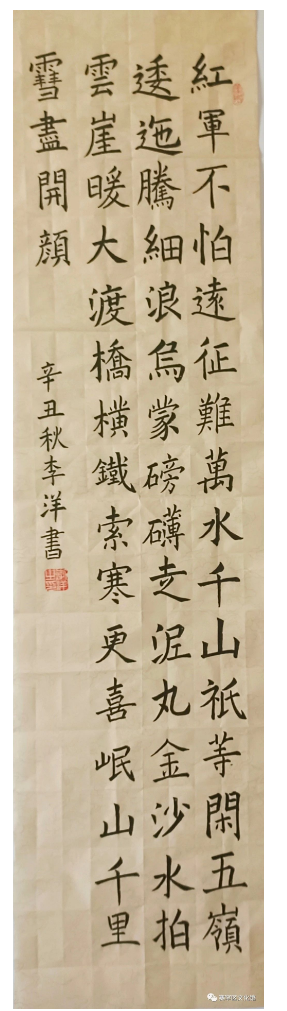 紅軍不怕遠征難萬水千山祇等閑五嶺
逶迤騰細浪烏蒙磅礴走泥丸金沙水拍
雲崖暖大渡橋橫鐵索寒更喜岷山千里
䨮盡開顏
辛丑秋李洋書